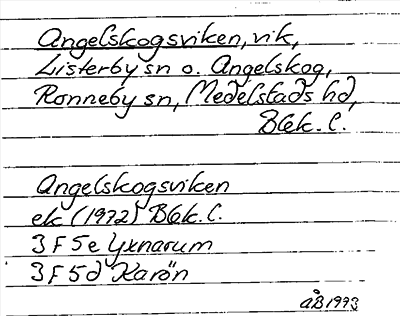 Angelskogsviken, vik,
Listerby sn o. Angelskog,
Ronneby sn, Medelstads hd,
Blek. l.
Angelskogsviken
ek (1972) Blek. l.
3 F 5 e Yxnarum
3 F 5 d Karön
åB 1993